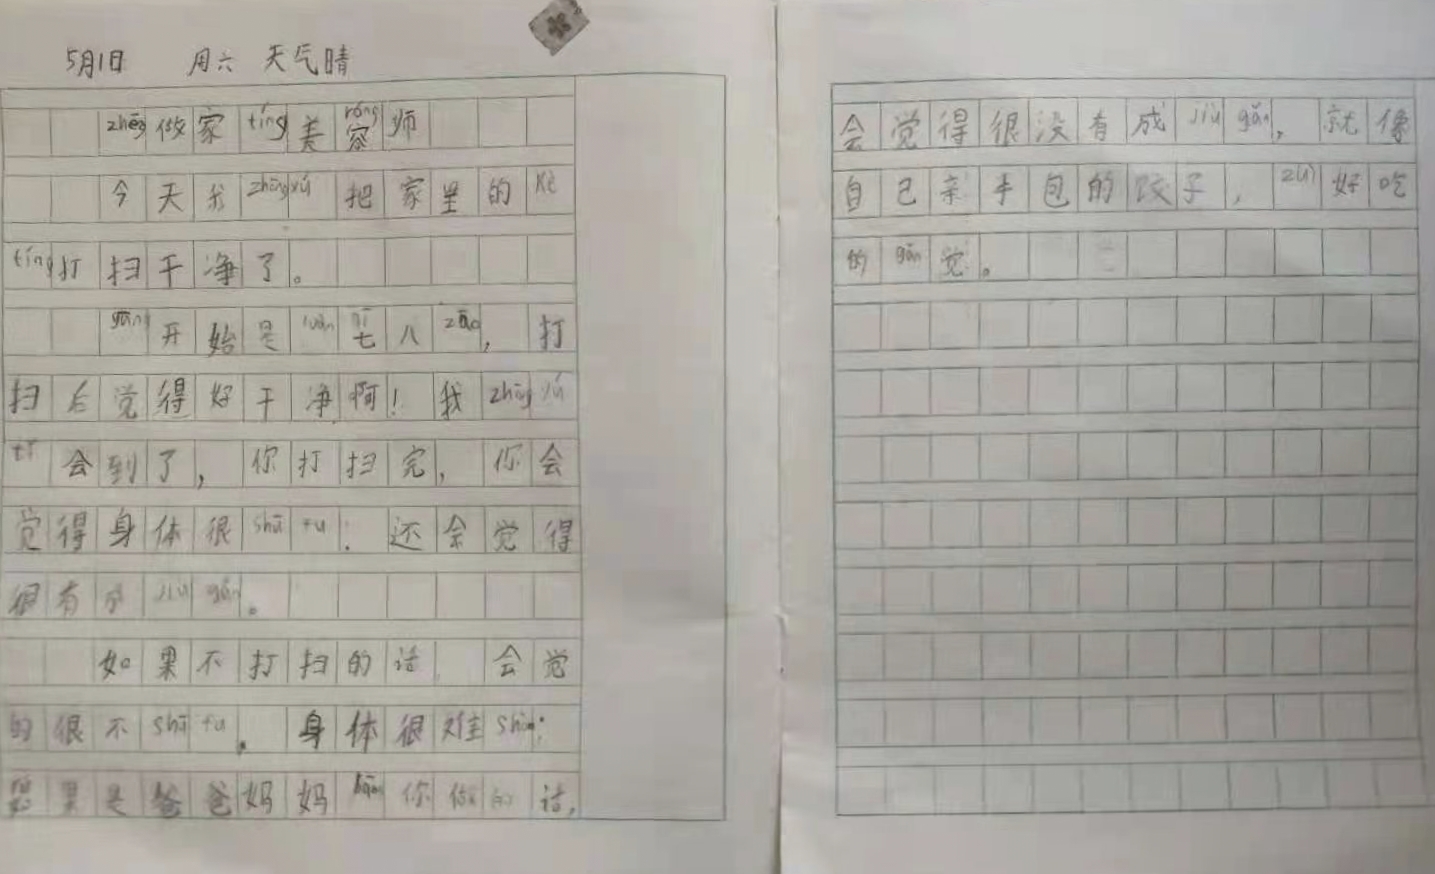 5月1日 周六 天气晴
zhēng做家tíng美容róng师
今天我zhōng yú把家里的kè
tíng打扫干净了。
gāng开始是luàn七qī八zāo,打
扫后觉得好干净啊!我zhōng yú
tǐ会到了,你打扫完,你会
觉得身体很shū fu:还会觉得
很有成jiù gǎn。
如果不打扫的话,会觉
的很不shū fu。身体很难shòu:
如果是爸爸妈妈 你做的话,
会觉得很没有成jiù gǎn,就像
自己亲手包的饺子,zuì好吃
的gǎn觉。